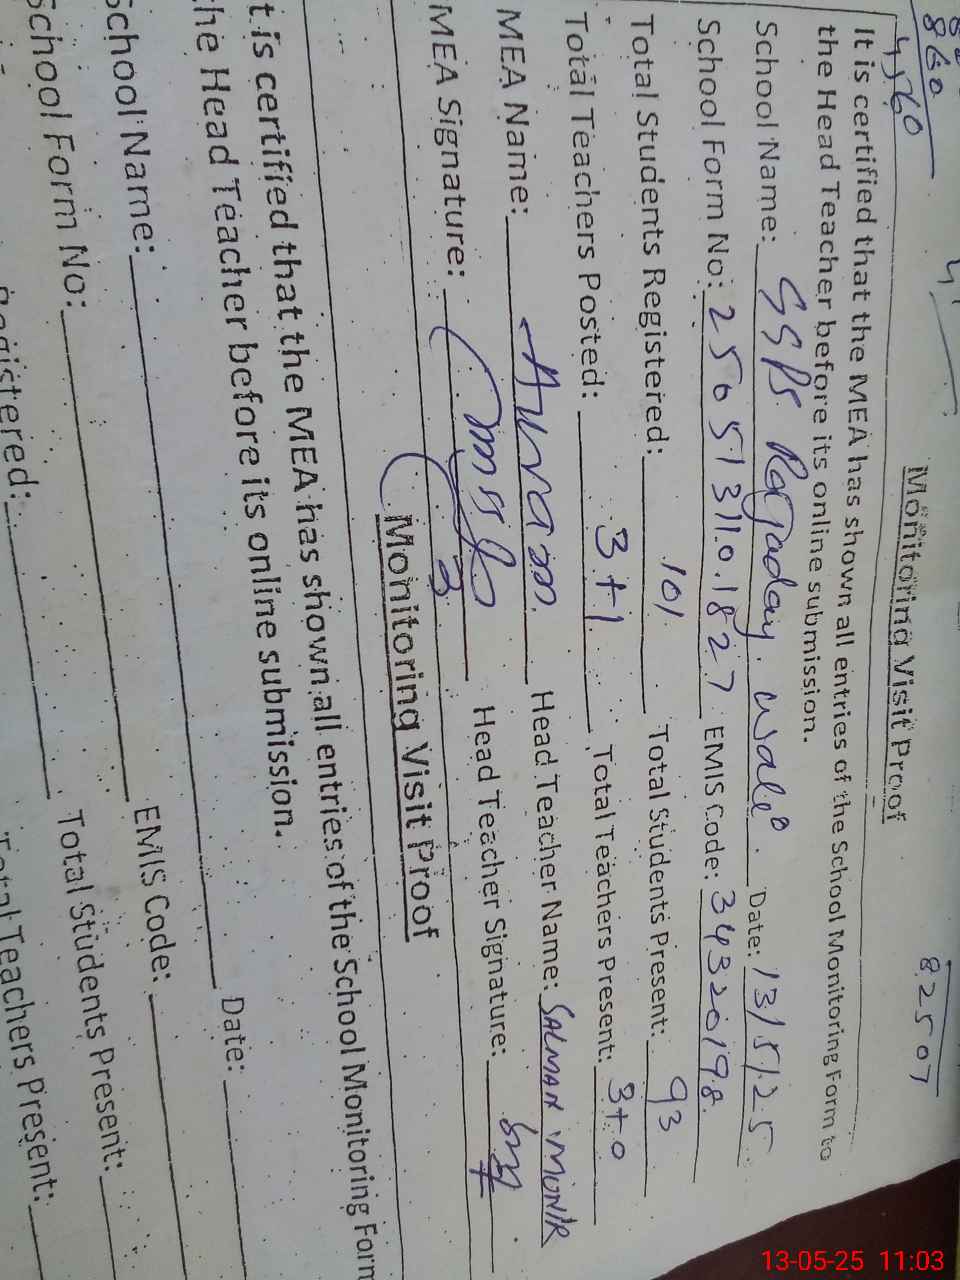 860
4560
82507
Monitoring Visit Proof
It is certified that the MEA has shown all entries of the School Monitoring Form to
the Head Teacher before its online submission.
School Name: GGPS Date: 13/5/25
School Form No: EMIS Code: 34320198
Total Students Registered: 101 Total Students Present: 93
Total Teachers Posted: 3+1 Total Teachers Present: 3+0
MEA Name: Head Teacher Name: SALMAN MUNIR
MEA Signature: Head Teacher Signature:
Monitoring Visit Proof
t is certified that the MEA has shown all entries of the School Monitoring Form
he Head Teacher before its online submission.
chool Name: Date:
School Form No: EMIS Code:
Registered: Total Students Present:
Total Teachers Present:
13-05-25 11:03